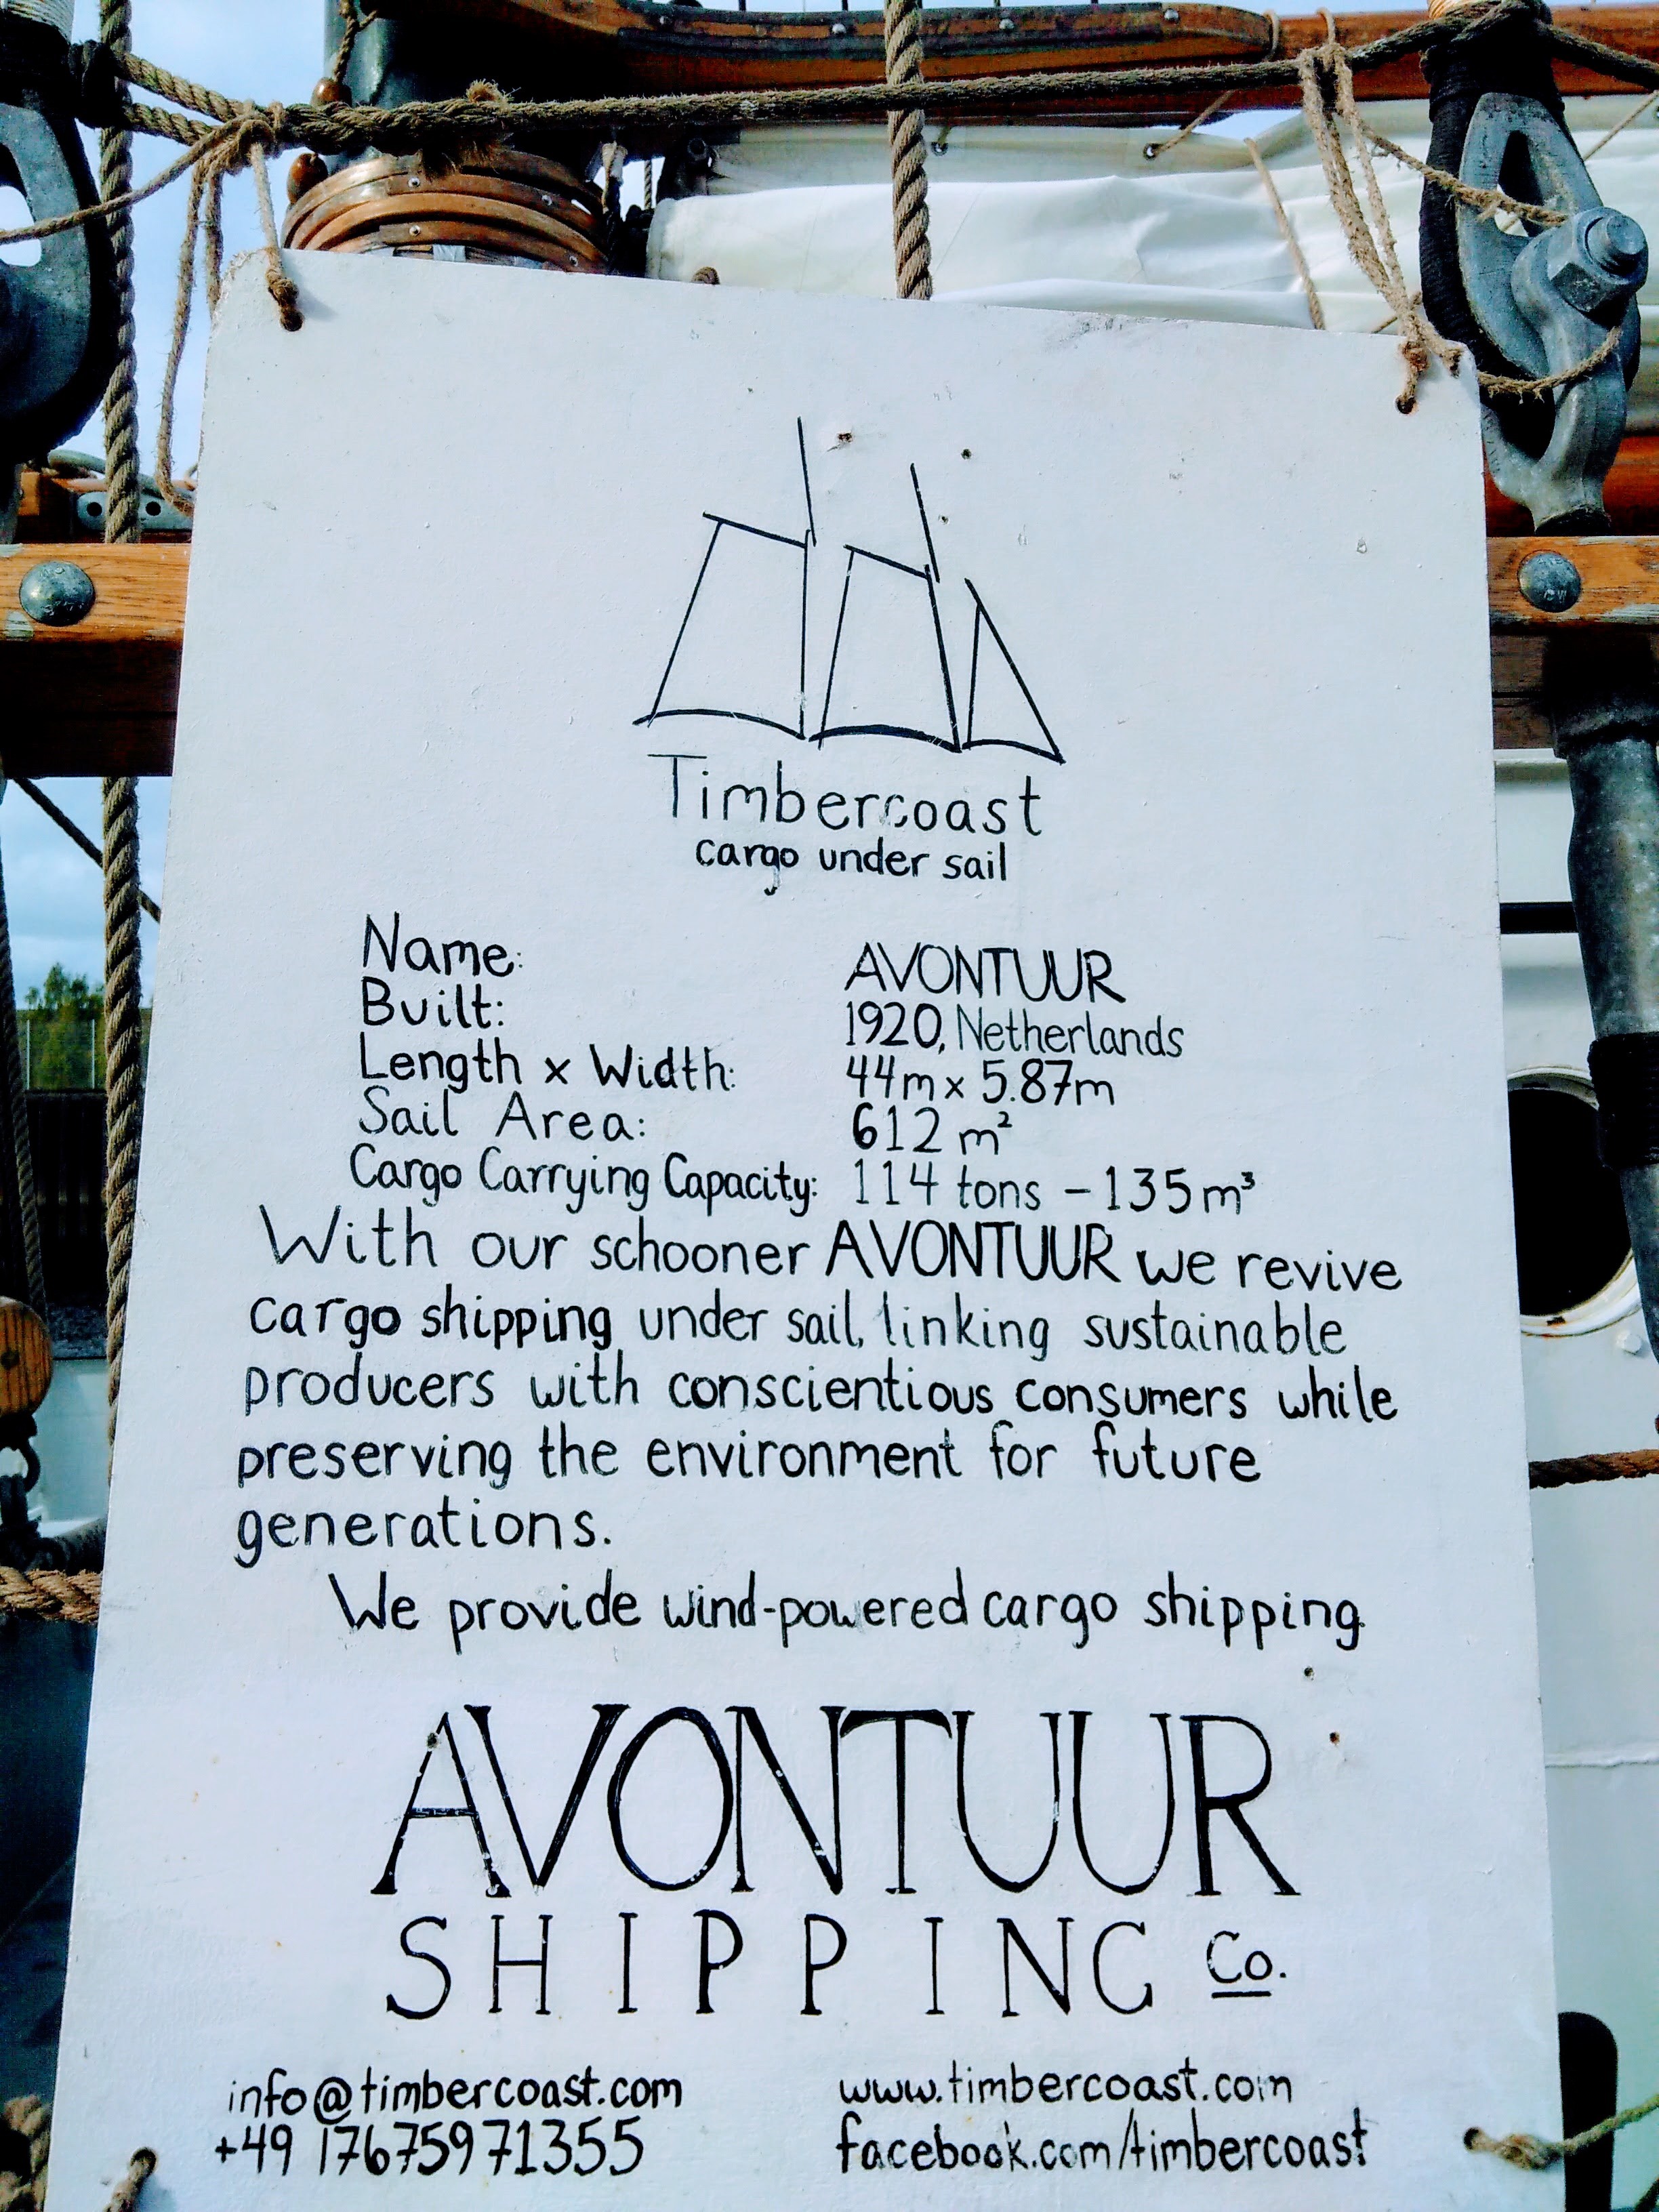 Timbercoast
cargo under sail
Name: AVONTUUR
Built: 1920, Netherlands
Length x Width: 44m x 5.87m
Sail Area: 612 m²
Cargo Carrying Capacity: 114 tons - 135m³
With our schooner AVONTUUR we revive
cargo shipping under sail, linking sustainable
producers with conscientious consumers while
preserving the environment for future
generations.
We provide wind-powered cargo shipping
AVONTUUR
SHIPPING Co.
info@timbercoast.com www.timbercoast.com
+49 17675971355 facebook.com/timbercoast